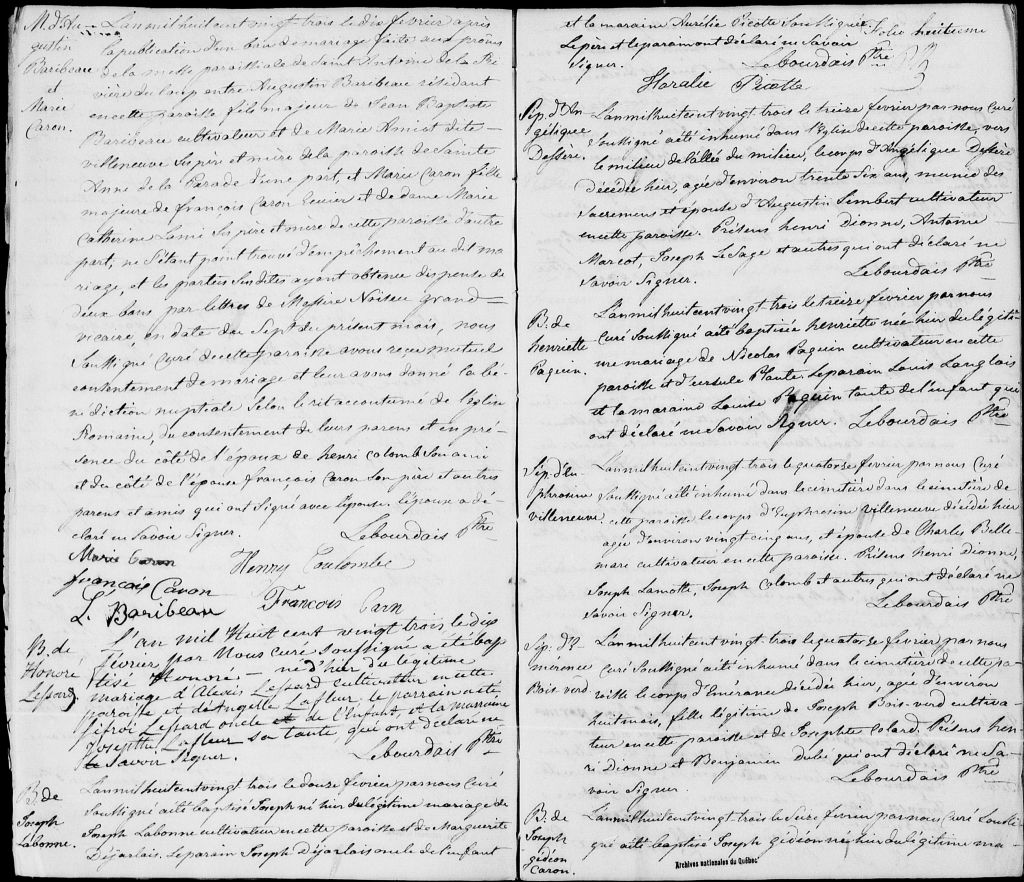 M. d'Au-
gustin
Baribeau
et
Marie
Caron.
L'an mil huit cent vingt trois le dix fevrier après
la publication d'un ban de mariage faite aux prônes
de la messe paroissiale de Saint Antoine de la Ri-
vière du loup entre Augustin Baribeau résidant
en cette paroisse fils majeur de Jean Baptiste
Baribeau cultivateur et de Marie Amiot dite
villeneuve ses père et mère de la paroisse de Sainte
Anne de la Perade d'une part, et Marie Caron fille
majeure de françois Caron Ecuier et de dame Marie
Catherine Lami ses père et mère de cette paroisse d'autre
part, ne s'étant point trouvé d'empêchement au dit ma-
riage, et les parties susdites ayant obtenu dispense de
deux bans par lettres de Messire Noiseux grand
vicaire, en date du Sept du présent mois, nous
Soussigné Curé de cette paroisse avons reçu mutuel
consentement de mariage et leur avons donné la bé-
nédiction nuptiale selon le rit accoutumé de l'église
Romaine, du consentement de leurs parens et en pré-
sence du côté de l'époux de henri Colomb son ami
et du côté de l'épouse françois Caron son père et autres
parens et amis qui ont signé avec l'épouse. l'époux a dé-
claré ne savoir signer. Lebourdais Ptre
Marie Caron
Henry Coulombe
françois Caron
L. Baribeau François Carn
B. de
Honoré
Lessard
L'an mil Huit cent vingt trois le dix
fevrier par Nous curé soussigné a été bap
tisé Honoré né d'hier du légitime
mariage d'Alexis Lessard cultivateur en cette
paroisse et d'Angelle Lafleur, le parrain a été,
Jifroi Lessard oncle et de l'Enfant, et la marraine
Josephte Lafleur sa tante, qui ont déclaré ne
Savoir Signer. Lebourdais Ptre
B. de
Joseph
Labonne.
L'an mil huit cent vingt trois le douze fevrier par nous Curé
Soussigné a été baptisé Joseph né hier du légitime mariage de
Joseph Labonne cultivateur en cette paroisse et de Marguerite
Dejarlais. Le parain Joseph Déjarlais oncle de l'enfant
et la maraine Aurélie Picotte Soussignée. Folio huitieme
Le père et le parain ont déclaré ne savoir
Signer. Lebourdais Ptre
Horalie Picotte
Sép. d'An
gélique
Dessère.
L'an mil huit cent vingt trois le treize fevrier par nous Curé
Soussigné a été inhumé dans l'Eglise de cette paroisse, vers
le milieu de l'allée du milieu, le corps d'Angelique Dessère
décédée hier, agée d'environ trente six ans, munie des
sacremens et épouse d'Augustin Lembert cultivateur
en cette paroisse. Présens henri Dionne, Antoine
Marcot, Joseph LeSage et autres qui ont déclaré ne
savoir Signer. Lebourdais Ptre
B. de
henriette
Paquin.
L'an mil huit cent vingt trois le treize fevrier par nous
Curé Soussigné a été baptisée henriette née hier du légiti-
me mariage de Nicolas Paquin cultivateur en cette
paroisse et d'ursule Plante. Le parain Louis Langlais
et la maraine Louise Paquin tante de l'enfant qui
ont déclaré ne savoir signer. Lebourdais Ptre
Sép. d'Eu
phrosine
villeneuve
L'an mil huit cent vingt trois le quatorze fevrier par nous Curé
Soussigné a été inhumé dans le cimetière dans le cimetière de
cette paroisse le corps d'Euphrosine villeneuve décédée hier
agée d'environ vingt cinq ans, et épouse de Charles Belle
mare cultivateur en cette paroisse. Présens henri Dionne,
Joseph Lamotte, Joseph Colomb et autres qui ont déclaré ne
Savoir Signer. Lebourdais Ptre
Sép. d'E-
merance
Bois verd
L'an mil huit cent vingt trois le quatorze fevrier par nous
Curé Soussigné a été inhumé dans le cimetière de cette pa-
roisse le corps d'Emérance décédée hier, agée d'environ
huit mois, fille légitime de Joseph Bois-verd cultiva-
teur en cette paroisse et de Josephte Colard. Présens hen-
ri Dionne et Benjamin Dubé qui ont déclaré ne Sa-
voir Signer. Lebourdais Ptre
B. de
Joseph
gédéon
Caron.
L'an mil huit cent vingt trois le Seize fevrier par nous Curé Soussi-
gné a été baptisé Joseph gédéon né hier du légitime ma-
Archives nationales du Québec